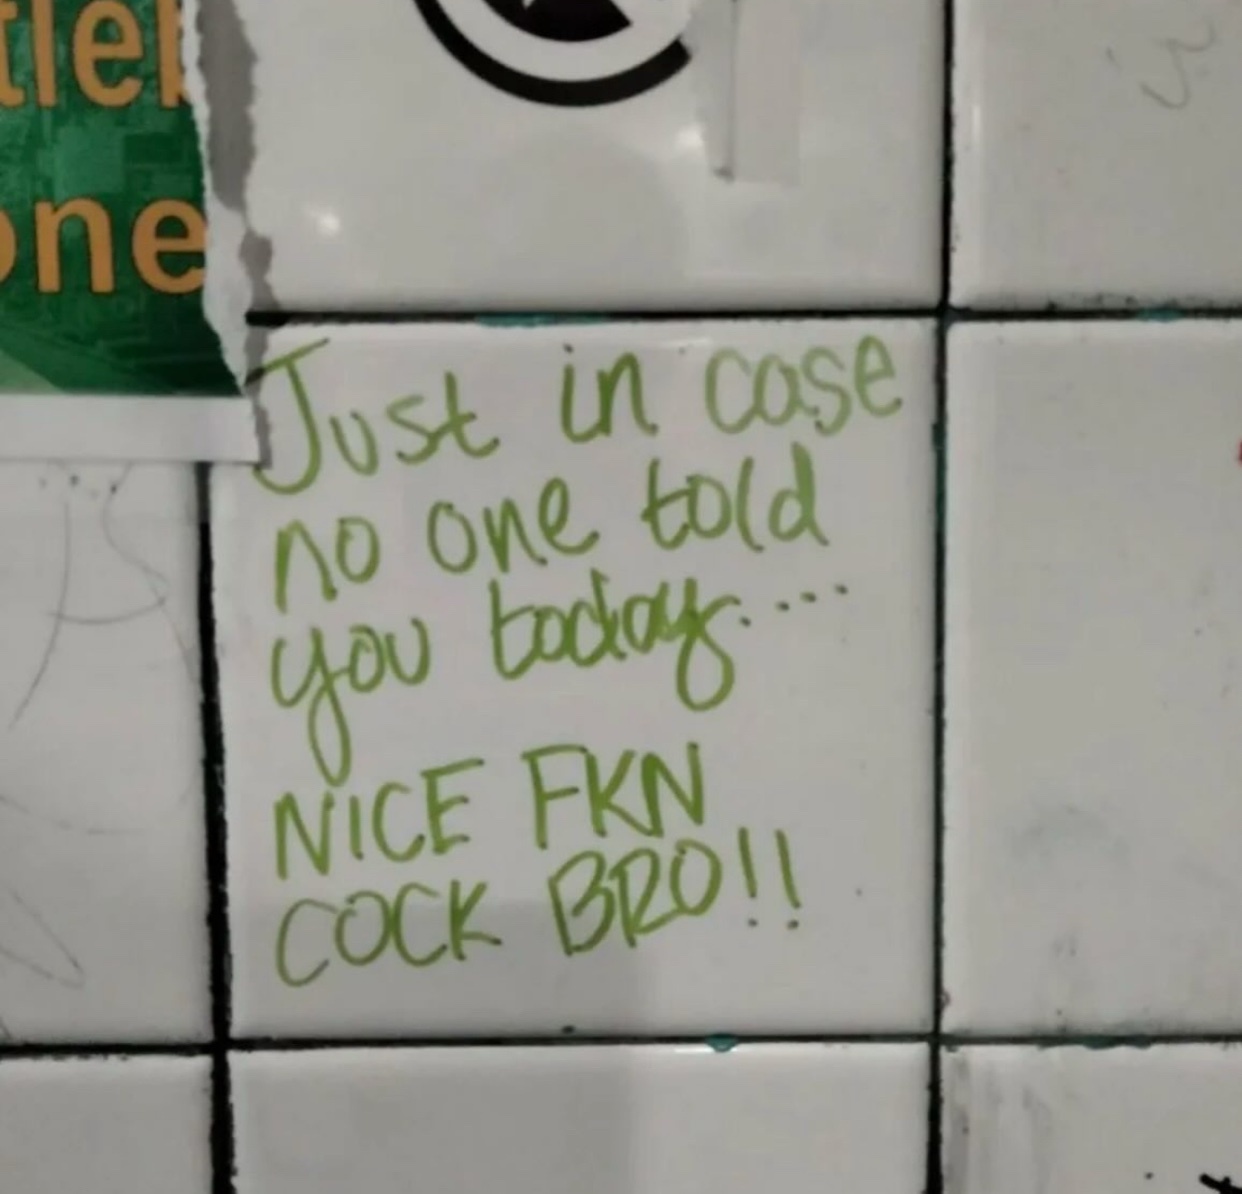 one
Just in case
no one told
you today....
NICE FKN
COCK BRO!!